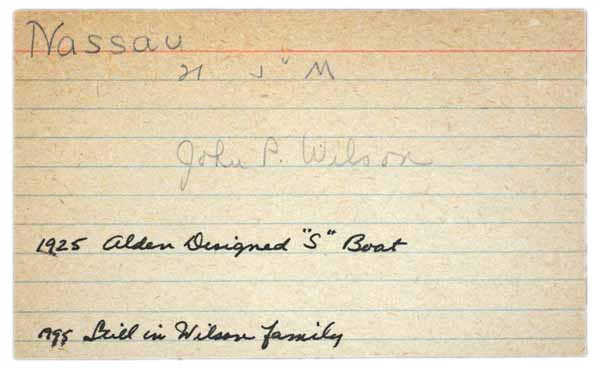 Nassau
21 J" M
John P. Wilson
1925 Alden Designed "S" Boat
1995 Still in Wilson family